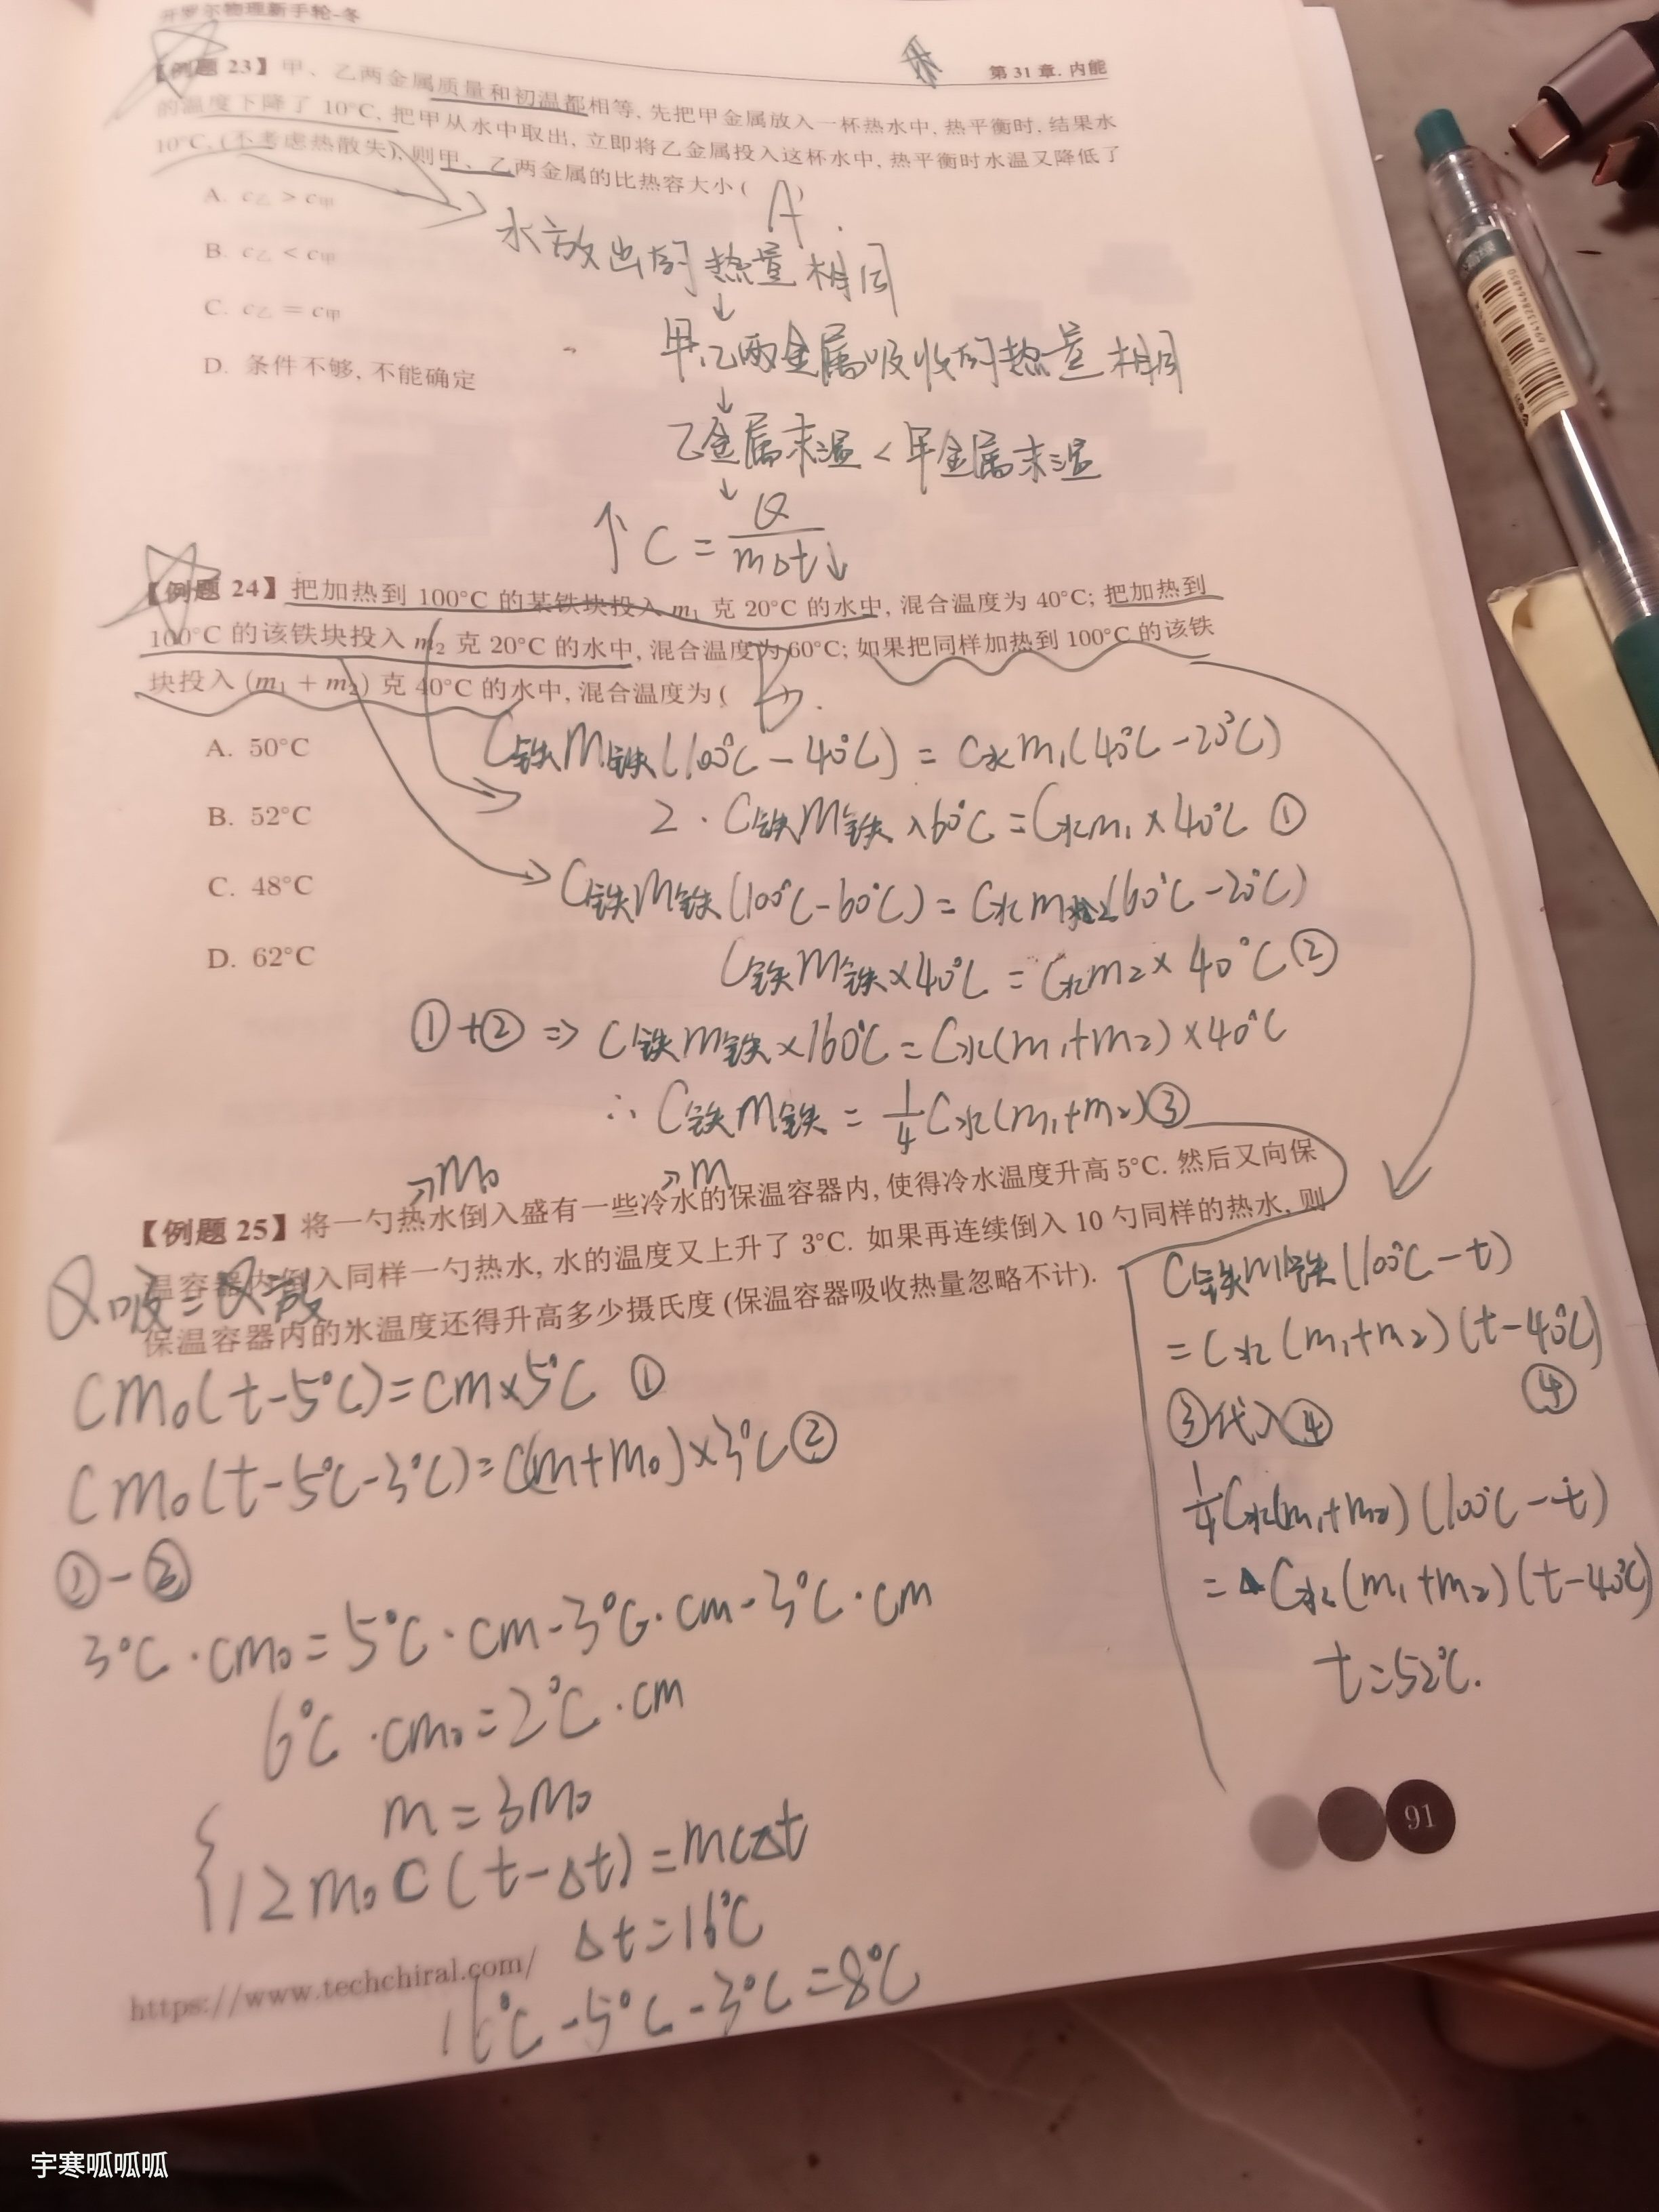 开罗尔物理新手轮-冬
第 31 章. 内能
【例题 23】甲、乙两金属质量和初温都相等, 先把甲金属放入一杯热水中, 热平衡时, 结果水
的温度下降了 10°C, 把甲从水中取出, 立即将乙金属投入这杯水中, 热平衡时水温又降低了
10°C, (不考虑热散失), 则甲、乙两金属的比热容大小 ( A )
A. c乙 > c甲
B. c乙 < c甲
C. c乙 = c甲
D. 条件不够, 不能确定
水放出的热量相同
↓
甲、乙两金属吸收的热量相同
↓
乙金属末温 < 甲金属末温
↓
↑ C = Q/mΔt↓
【例题 24】把加热到 100°C 的某铁块投入 m₁ 克 20°C 的水中, 混合温度为 40°C; 把加热到
100°C 的该铁块投入 m₂ 克 20°C 的水中, 混合温度为 60°C; 如果把同样加热到 100°C 的该铁
块投入 (m₁ + m₂) 克 40°C 的水中, 混合温度为 ( B ).
A. 50°C
B. 52°C
C. 48°C
D. 62°C
C铁m铁(100°C-40°C) = C水m₁(40°C-20°C)
2·C铁m铁×60°C = C水m₁×40°C ①
C铁m铁(100°C-60°C) = C水m₂(60°C-20°C)
C铁m铁×40°C = C水m₂×40°C ②
①+② => C铁m铁×160°C = C水(m₁+m₂)×40°C
∴ C铁m铁 = 1/4 C水(m₁+m₂) ③
C铁m铁(100°C-t)
= C水(m₁+m₂)(t-40°C)
④
③代入④
1/4 C水(m₁+m₂)(100°C-t)
= C水(m₁+m₂)(t-40°C)
t=52°C.
→m₀ →m
【例题 25】将一勺热水倒入盛有一些冷水的保温容器内, 使得冷水温度升高 5°C. 然后又向保
温容器内倒入同样一勺热水, 水的温度又上升了 3°C. 如果再连续倒入 10 勺同样的热水, 则
保温容器内的水温度还得升高多少摄氏度 (保温容器吸收热量忽略不计).
Q吸=Q放
cm₀(t-5°C)=cm×5°C ①
cm₀(t-5°C-3°C)=c(m+m₀)×3°C ②
①-②
3°C·cm₀=5°C·cm-3°C·cm-3°C·cm
6°C·cm₀=2°C·cm
m=3m₀
12m₀c(t-Δt)=mcΔt
Δt=16°C
16°C-5°C-3°C=8°C
https://www.techchiral.com/
91
宇寒呱呱呱